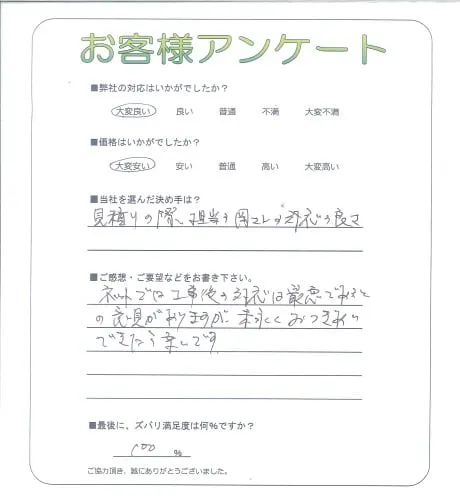 お客様アンケート
■弊社の対応はいかがでしたか?
大変良い 良い 普通 不満 大変不満
■価格はいかがでしたか?
大変安い 安い 普通 高い 大変高い
■当社を選んだ決め手は?
見積りの際、担当の 対応の良さ
■ご感想・ご要望などをお書き下さい。
ネットでは工事後の対応は最悪で
の意見がありますが、末永くおつきあい
できたら幸いです
■最後に、ズバリ満足度は何%ですか?
100 %
ご協力頂き、誠にありがとうございました。